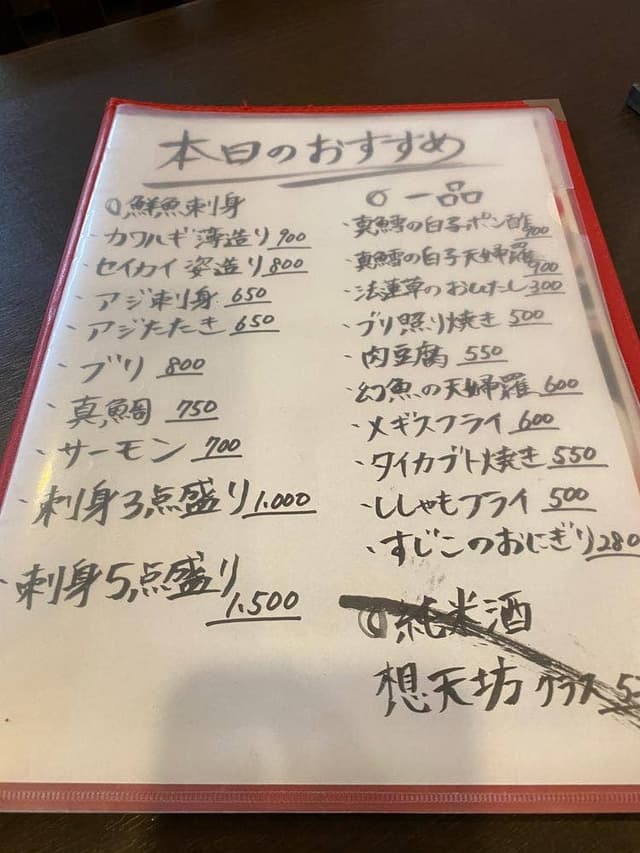 本日のおすすめ
◎鮮魚刺身
・カワハギ薄造り 900
・セイカイ姿造り 800
・アジ刺身 650
・アジたたき 650
・ブリ 800
・真鯛 750
・サーモン 700
・刺身3点盛り 1.000
・刺身5点盛り 1.500
◎一品
・真鱈の白子ポン酢 900
・真鱈の白子天婦羅 900
・法蓮草のおひたし 300
・ブリ照り焼き 500
・肉豆腐 550
・幻魚の天婦羅 600
・メギスフライ 600
・タイカブト焼き 550
・ししゃもフライ 500
・すじこのおにぎり 280
◎純米酒
想天坊 グラス